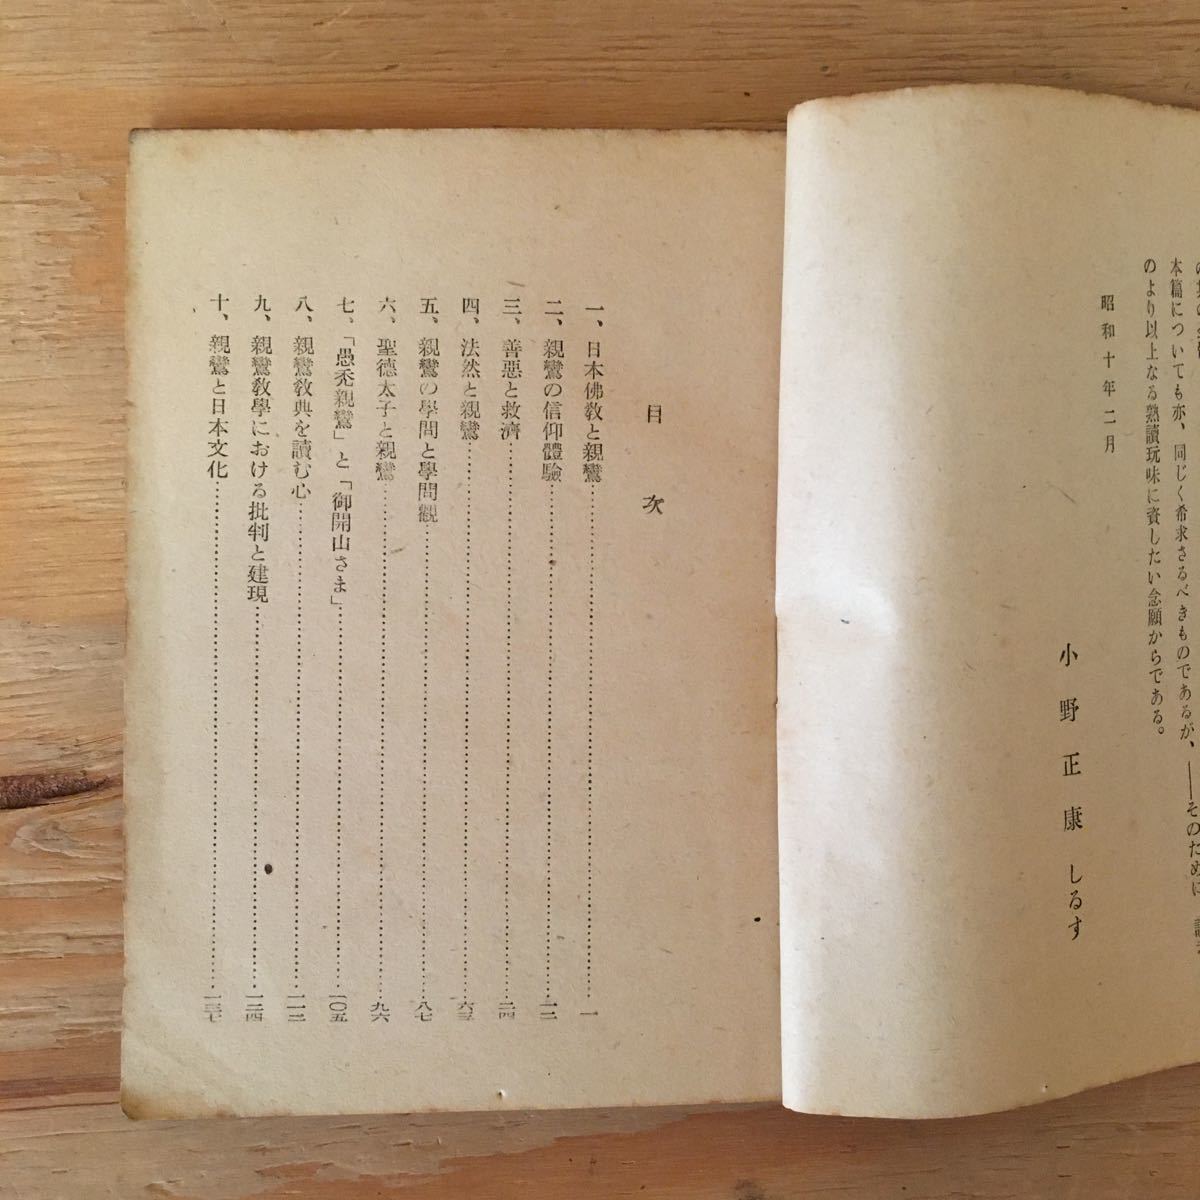 本篇についても亦、同じく希求さるべきものであるが、――そのために
のより以上なる熟讀玩味に資したい念願からである。
昭和十年二月
小野正康しるす
目次
一、日本佛敎と親鸞……一
二、親鸞の信仰體驗……一二
三、善惡と救濟……二四
四、法然と親鸞……六三
五、親鸞の學問と學問觀……八七
六、聖德太子と親鸞……九六
七、「愚禿親鸞」と「御開山さま」……一〇五
八、親鸞敎典を讀む心……一一二
九、親鸞敎學における批判と建現……一二四
十、親鸞と日本文化……一三七